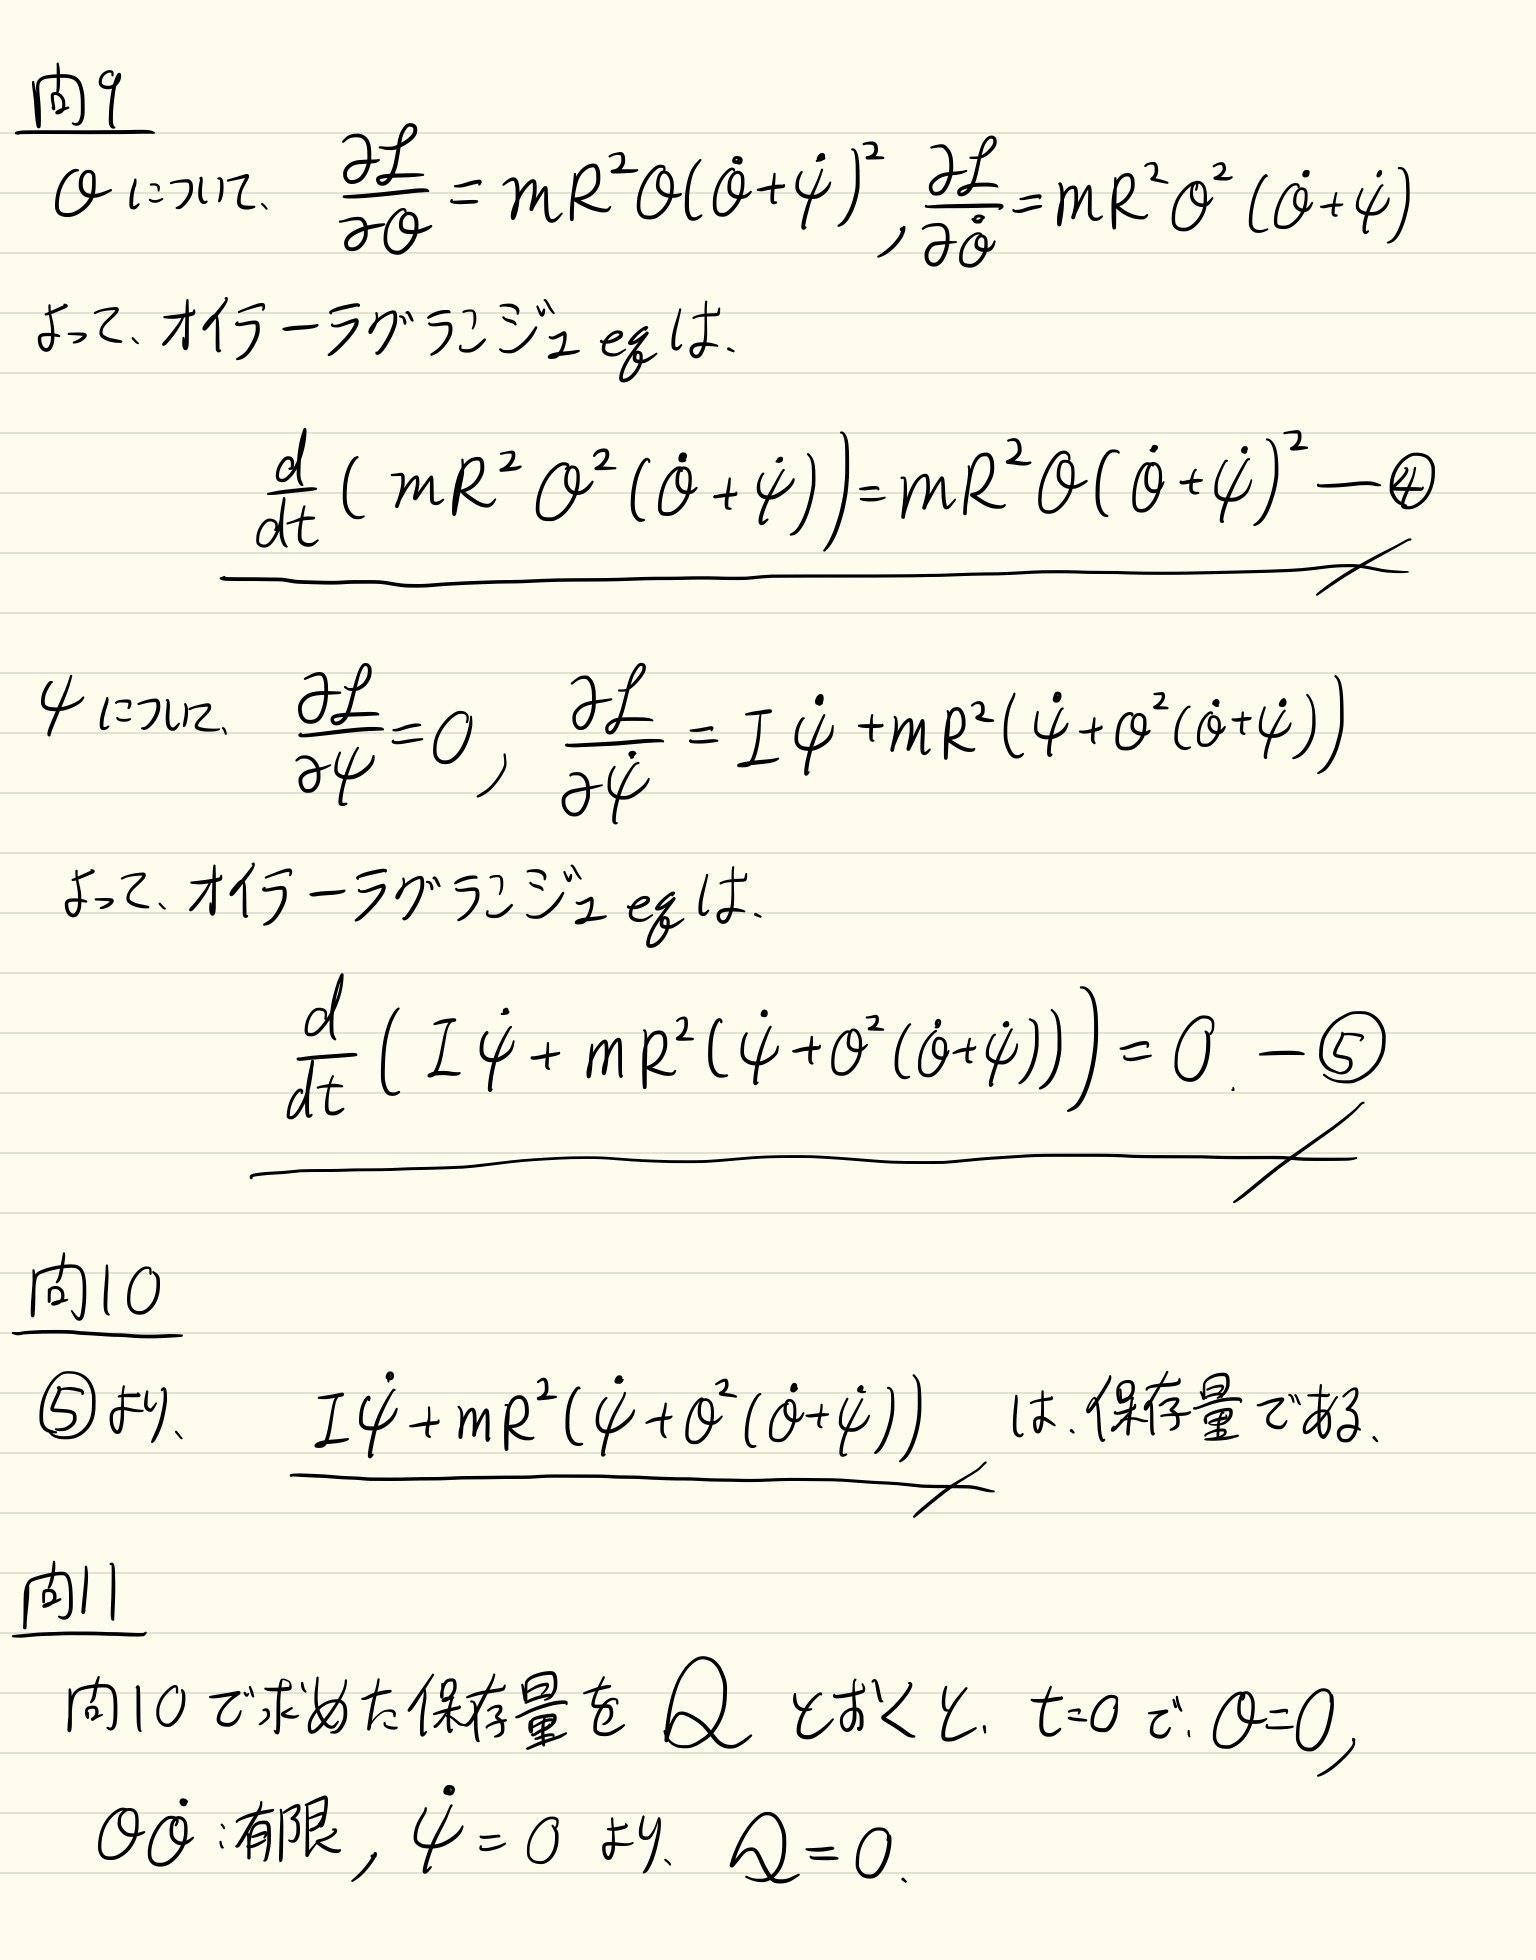 問9
θについて、 ∂ℒ/∂θ = mR²θ(θ̇+ψ̇)², ∂ℒ/∂θ̇ = mR²θ²(θ̇+ψ̇)
よって、オイラーラグランジュeqは、
d/dt(mR²θ²(θ̇+ψ̇)) = mR²θ(θ̇+ψ̇)² —④
ψについて、 ∂ℒ/∂ψ = 0, ∂ℒ/∂ψ̇ = Iψ̇ + mR²(ψ̇+θ²(θ̇+ψ̇))
よって、オイラーラグランジュeqは、
d/dt(Iψ̇ + mR²(ψ̇+θ²(θ̇+ψ̇))) = 0. —⑤
問10
⑤より、 Iψ̇+mR²(ψ̇+θ²(θ̇+ψ̇)) は、保存量である、
問11
問10で求めた保存量をQとおくと、t=0で、θ=0,
θθ̇:有限, ψ̇=0より、Q=0.